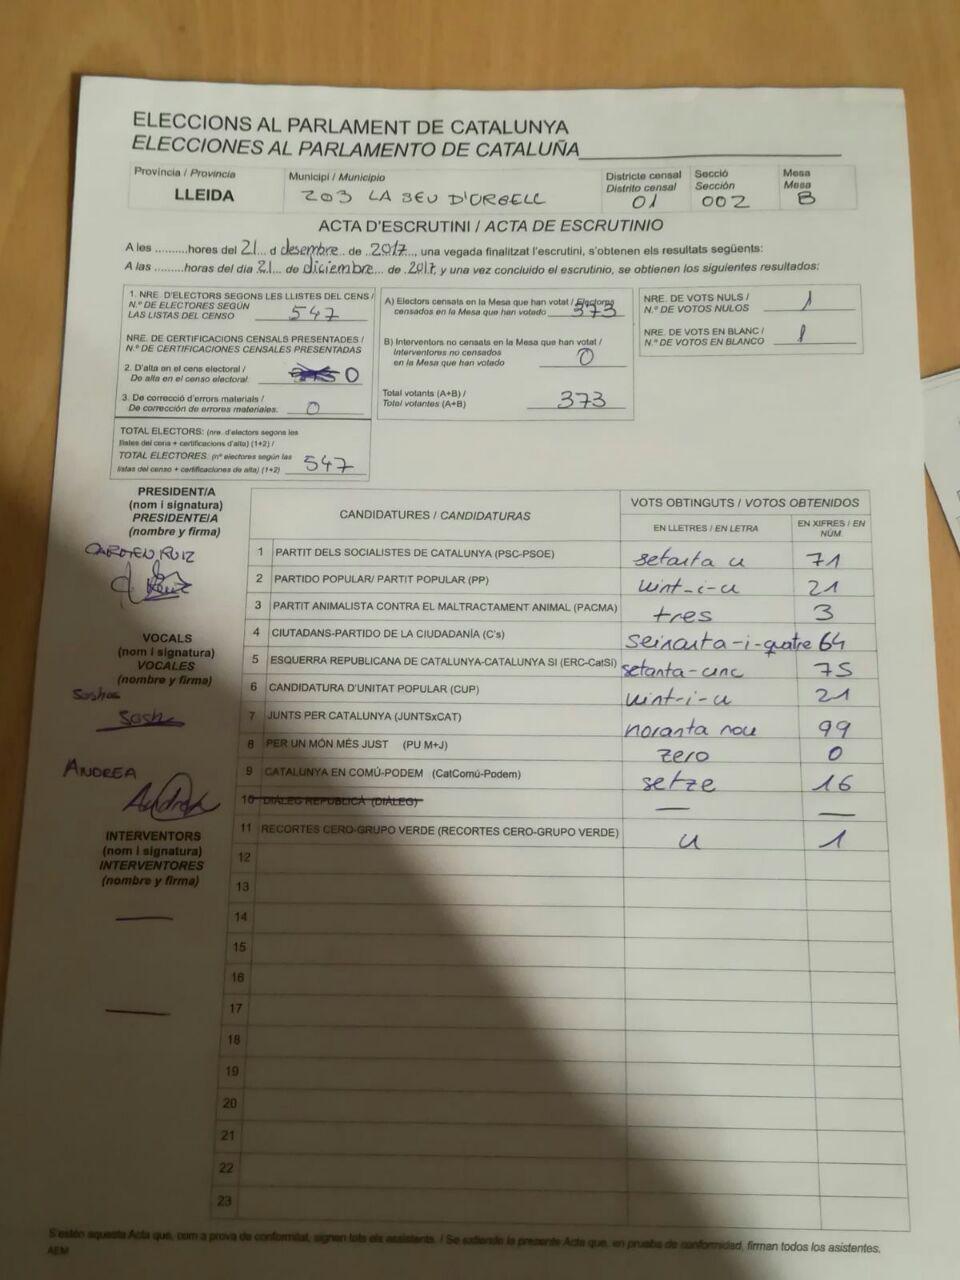 ELECCIONS AL PARLAMENT DE CATALUNYA
ELECCIONES AL PARLAMENTO DE CATALUÑA
Província / Provincia
LLEIDA
Municipi / Municipio
203 LA SEU D'URGELL
Districte censal
Distrito censal
01
Secció
Sección
002
Mesa
Mesa
B
ACTA D'ESCRUTINI / ACTA DE ESCRUTINIO
A les ..........hores del 21.. d desembre.. de ..2017.., una vegada finalitzat l'escrutini, s'obtenen els resultats següents:
A las .........horas del día 21... de diciembre... de .2017, y una vez concluido el escrutinio, se obtienen los siguientes resultados:
1. NRE. D'ELECTORS SEGONS LES LLISTES DEL CENS /
N.º DE ELECTORES SEGÚN
LAS LISTAS DEL CENSO 547
NRE. DE CERTIFICACIONS CENSALS PRESENTADES /
N.º DE CERTIFICACIONES CENSALES PRESENTADAS
2. D'alta en el cens electoral /
De alta en el censo electoral. 0
3. De correcció d'errors materials /
De corrección de errores materiales. 0
TOTAL ELECTORS: (nre. d'electors segons les
llistes del cens + certificacions d'alta) (1+2) /
TOTAL ELECTORES: (nº electores según las
listas del censo + certificaciones de alta) (1+2) 547
A) Electors censats en la Mesa que han votat / Electores
censados en la Mesa que han votado 373
B) Interventors no censats en la Mesa que han votat /
Interventores no censados
en la Mesa que han votado 0
Total votants (A+B) /
Total votantes (A+B) 373
NRE. DE VOTS NULS /
N.º DE VOTOS NULOS 1
NRE. DE VOTS EN BLANC /
N.º DE VOTOS EN BLANCO 1
PRESIDENT/A
(nom i signatura)
PRESIDENTE/A
(nombre y firma)
CARMEN RUIZ
C. Ruiz
VOCALS
(nom i signatura)
VOCALES
(nombre y firma)
Sasha
ANDREA
Andrea
INTERVENTORS
(nom i signatura)
INTERVENTORES
(nombre y firma)
CANDIDATURES / CANDIDATURAS
VOTS OBTINGUTS / VOTOS OBTENIDOS
EN LLETRES / EN LETRA
EN XIFRES / EN
NÚM.
1 PARTIT DELS SOCIALISTES DE CATALUNYA (PSC-PSOE) setanta u 71
2 PARTIDO POPULAR/ PARTIT POPULAR (PP) vint-i-u 21
3 PARTIT ANIMALISTA CONTRA EL MALTRACTAMENT ANIMAL (PACMA) tres 3
4 CIUTADANS-PARTIDO DE LA CIUDADANÍA (C's) seixanta-i-quatre 64
5 ESQUERRA REPUBLICANA DE CATALUNYA-CATALUNYA SI (ERC-CatSí) setanta-cinc 75
6 CANDIDATURA D'UNITAT POPULAR (CUP) vint-i-u 21
7 JUNTS PER CATALUNYA (JUNTSxCAT) noranta nou 99
8 PER UN MÓN MÉS JUST (PU M+J) zero 0
9 CATALUNYA EN COMÚ-PODEM (CatComú-Podem) setze 16
10 DIÀLEG REPUBLICÀ (DIÀLEG) — —
11 RECORTES CERO-GRUPO VERDE (RECORTES CERO-GRUPO VERDE) u 1
12
13
14
15
16
17
18
19
20
21
22
23
S'estén aquesta Acta que, com a prova de conformitat, signen tots els assistents. / Se extiende la presente Acta que, en prueba de conformidad, firman todos los asistentes.
AEM